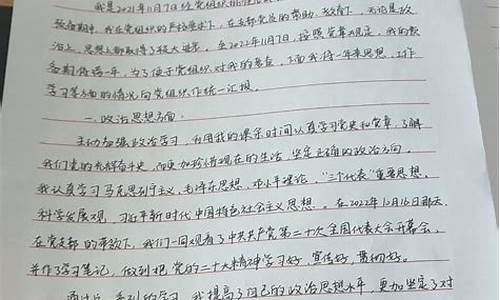 我是2021年11月7日经党组织批准
预备期中，我在党组织的严格要求下，在支部党员的帮助、教育下，无论是政
治上、思想上都取得了较大进步。在2022年11月7日，按照党章规定，我的预
备期将满一年，为了便于党组织对我的考察，下面我将一年来思想、工作
学习等方面的情况向党组织作统一汇报。
一、政治思想方面。
主动加强政治学习，利用我的课余时间认真学习党史和党章，了解
我们党的光辉奋斗史，从而更加珍惜现在的生活，坚定正确的政治方向。
我认真学习马克思列宁主义、毛泽东思想、邓小平理论、“三个代表”重要思想、
科学发展观、习近平新时代中国特色社会主义思想。在2022年10月16日那天，
在党支部的带领下，我们一同观看了中共共产党第二十次全国代表大会开幕会，
并作了学习笔记，做到把党的二十大精神学习好、宣传好、贯彻好。
通过这一系列的学习，我提高了自己的政治思想水平，更加坚定了对